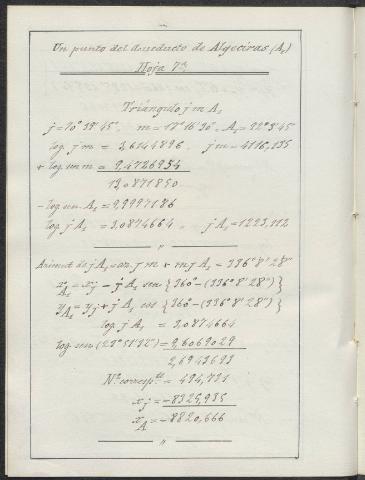 Un punto del Acueducto de Algeciras (A₁)
Hoja 7ª
Triángulo j m A₁
log. j m = 3,6144896. j m = 4116,135
+ log. sen m = 9,4726954
13,0871850
- log. sen. A₁ = 9,9997186
log. j A₁ = 3,0874664. j A₁ = 1223,112
"
Azimut de j A₁ = az. j m + m j A₁ = 336° 8' 28"
x A₁ = x j - j A₁ sen {360° - (336° 8' 28")}
y A₁ = y j + j A₁ cos {360° - (336° 8' 28")}
log. j A₁ = 3,0874664
log sen (23° 51' 32") = 9,6069029
2,6943693
N.º corresp.te = 494,731
x j = -8325,935
x A = -8820,666
"